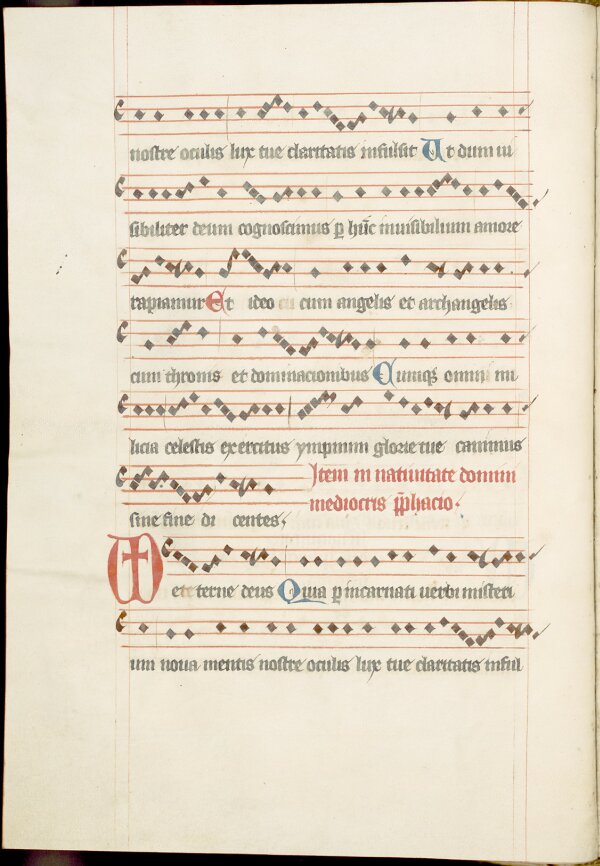 nostre oculis lux tue claritatis infulsit Ut dum ui
sibiliter deum cognoscimus p hūc inuisibilium amore
rapiamur Et ideo cu cum angelis et archangelis
cum thronis et dominacionibus Cumq3 omni mi
licia celestis exercitus ympnum glorie tue canimus
Item in natiuitate domini
mediocris p̄phacio.
sine fine di centes.
et eterne deus Quia p incarnati uerbi misteri
um noua mentis nostre oculis lux tue claritatis inful